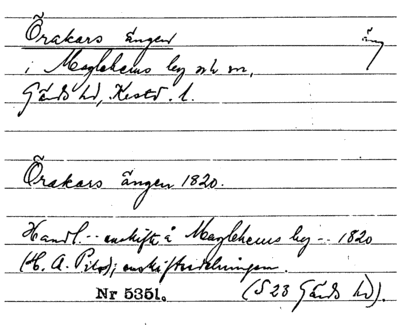 Örakars ängen äng
i Maglehems by och sn,
Gärds hd, Krstd. l.
Örakars ängen 1820.
Handl. -- enskifte å Maglehems by -- 1820
(H. A. Pihl); enskiftesdelningen.
Nr 5351. (S 23 Gärds hd).